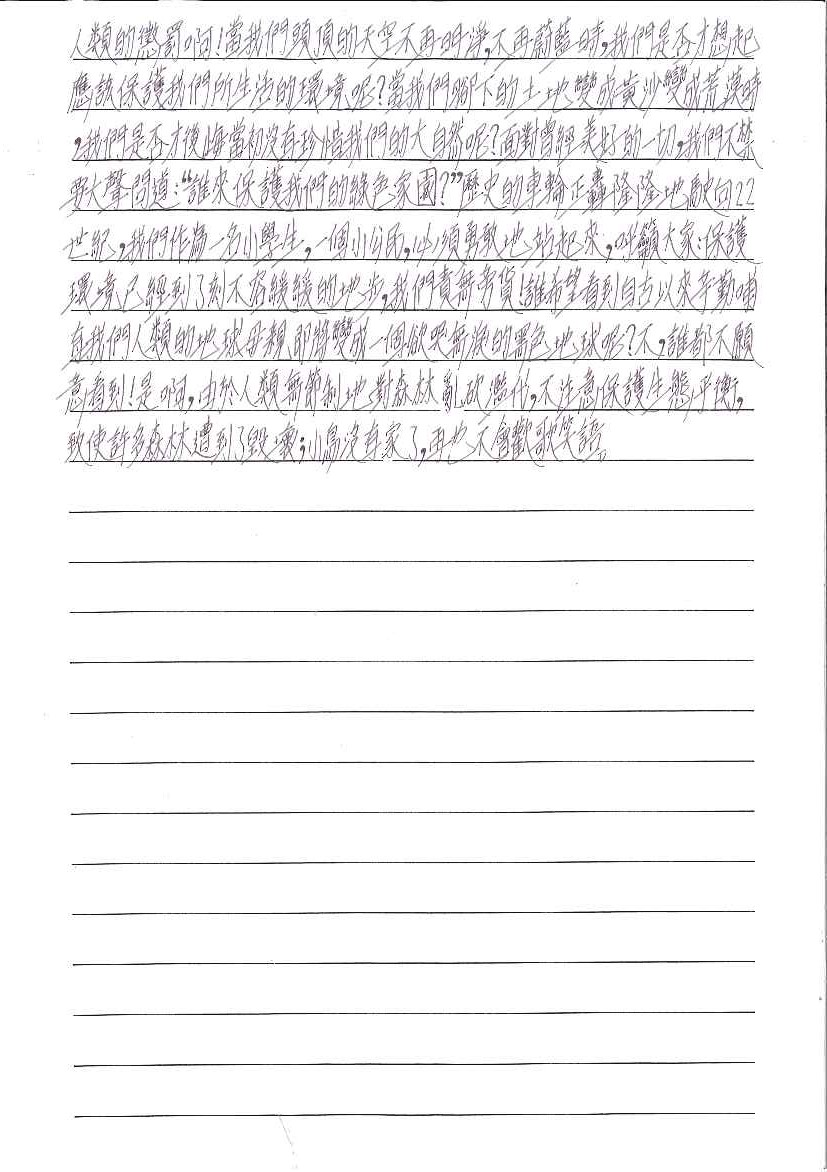 人類的懲罰啊!當我們頭頂的天空不再明淨,不再蔚藍時,我們是否才想起
應該保護我們所生活的環境呢?當我們腳下的土地變成黃沙變成荒漠時
,我們是否才後悔當初沒有珍惜我們的大自然呢?面對曾經美好的一切,我們不禁
要大聲問道:“誰來保護我們的綠色家園?”歷史的車輪正轟隆隆地駛向22
世紀,我們作為一名小學生,一個小公民,必須勇敢地站起來,呼籲大家:保護
環境已經到了刻不容緩緩的地步,我們責無旁貸!誰希望看到自古以來辛勤哺
育我們人類的地球母親即將變成一個欲哭無淚的黑色地球呢?不,誰都不願
意看到!是啊,由於人類無節制地對森林亂砍濫伐,不注意保護生態平衡,
致使許多森林遭到了毀壞;小鳥沒有家了,再也不會歡歌笑語。